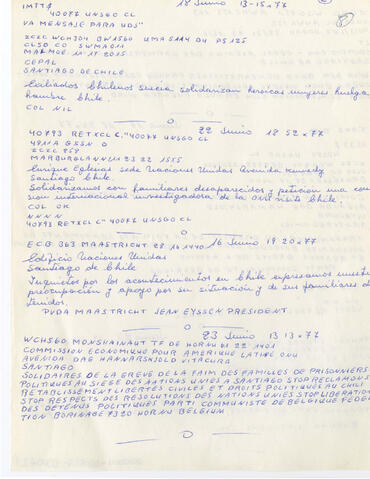 IMTT$ 18 Junio 13-15 x 77
"40077 UNSGO CL
VA MENSAJE PARA UDS"
ZCZC WCH304 BW1560 UMA5144 DU PS125
CLSD CO SWMA011
MALMOE 11 17 2015
CEPAL
SANTIAGO DE CHILE
Exiliados Chilenos Suecia solidarizan heroicas mujeres huelga
hambre Chile.
COL NIL
40793 RETXCL C "40077 UNSGO CL 22 Junio 18 52 x 77
4911A GSSN D
ZCZC 259
MARBURGLANN 1/11 23 22 1555
Enrique Iglesias sede Naciones Unidas Avenida Kennedy
Santiago Chile.
Solidarizamos con familiares desaparecidos y peticion una comi
sion internacional investigadora de la ONU visite Chile.
COL OK
NNNN
40793 RETXCL C "40077 UNSGO CL
ECB 363 MAASTRICHT 28 16 1440 16 Junio 19 20 x 77
Edificio Naciones Unidas
Santiago de Chile
Inquietos por los acontecimientos en Chile expresamos nuestra
preocupacion y apoyo por su situación y de sus familiares de
tenidos.
PVDA MAASTRICHT JEAN EYSSEN PRESIDENT.
23 Junio 13 13 x 77
WCH560 MONSHAINAUT TF DE HORNU 82 22 1401
COMMISSION ECONOMIQUE POUR AMERIQUE LATINE ONU
AVENIDA DAG HANNARSKJOLD VITACURA
SANTIAGO
SOLIDAIRES DE LA GREVE DE LA FAIM DES FAMILLES DE PRISONNIERS
POLITIQUES AU SIEGE DES NATIONS UNIES A SANTIAGO STOP RECLAMONS
RETABLISSEMENT LIBERTES CIVILES ET DROITS POLITIQUES AU CHILI
STOP RESPECTS DES RESOLUTIONS DES NATIONS UNIES STOP LIBERATION
DES DETENUS POLITIQUES PARTI COMMUNISTE DE BELGIQUE FEDERA
TION BORINAGE 7320 HORNU BELGIUM